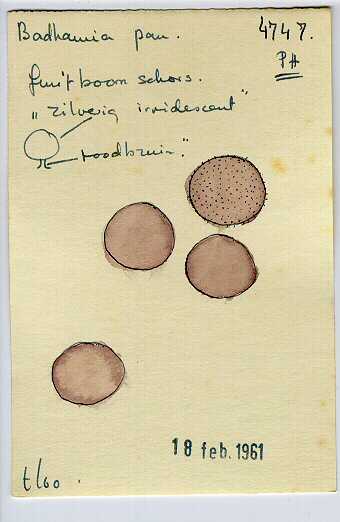 Badhamia pan.
4747.
PH
fruitboom schors.
„zilverig irridescent"
roodbruin."
18 feb. 1961
t/60.